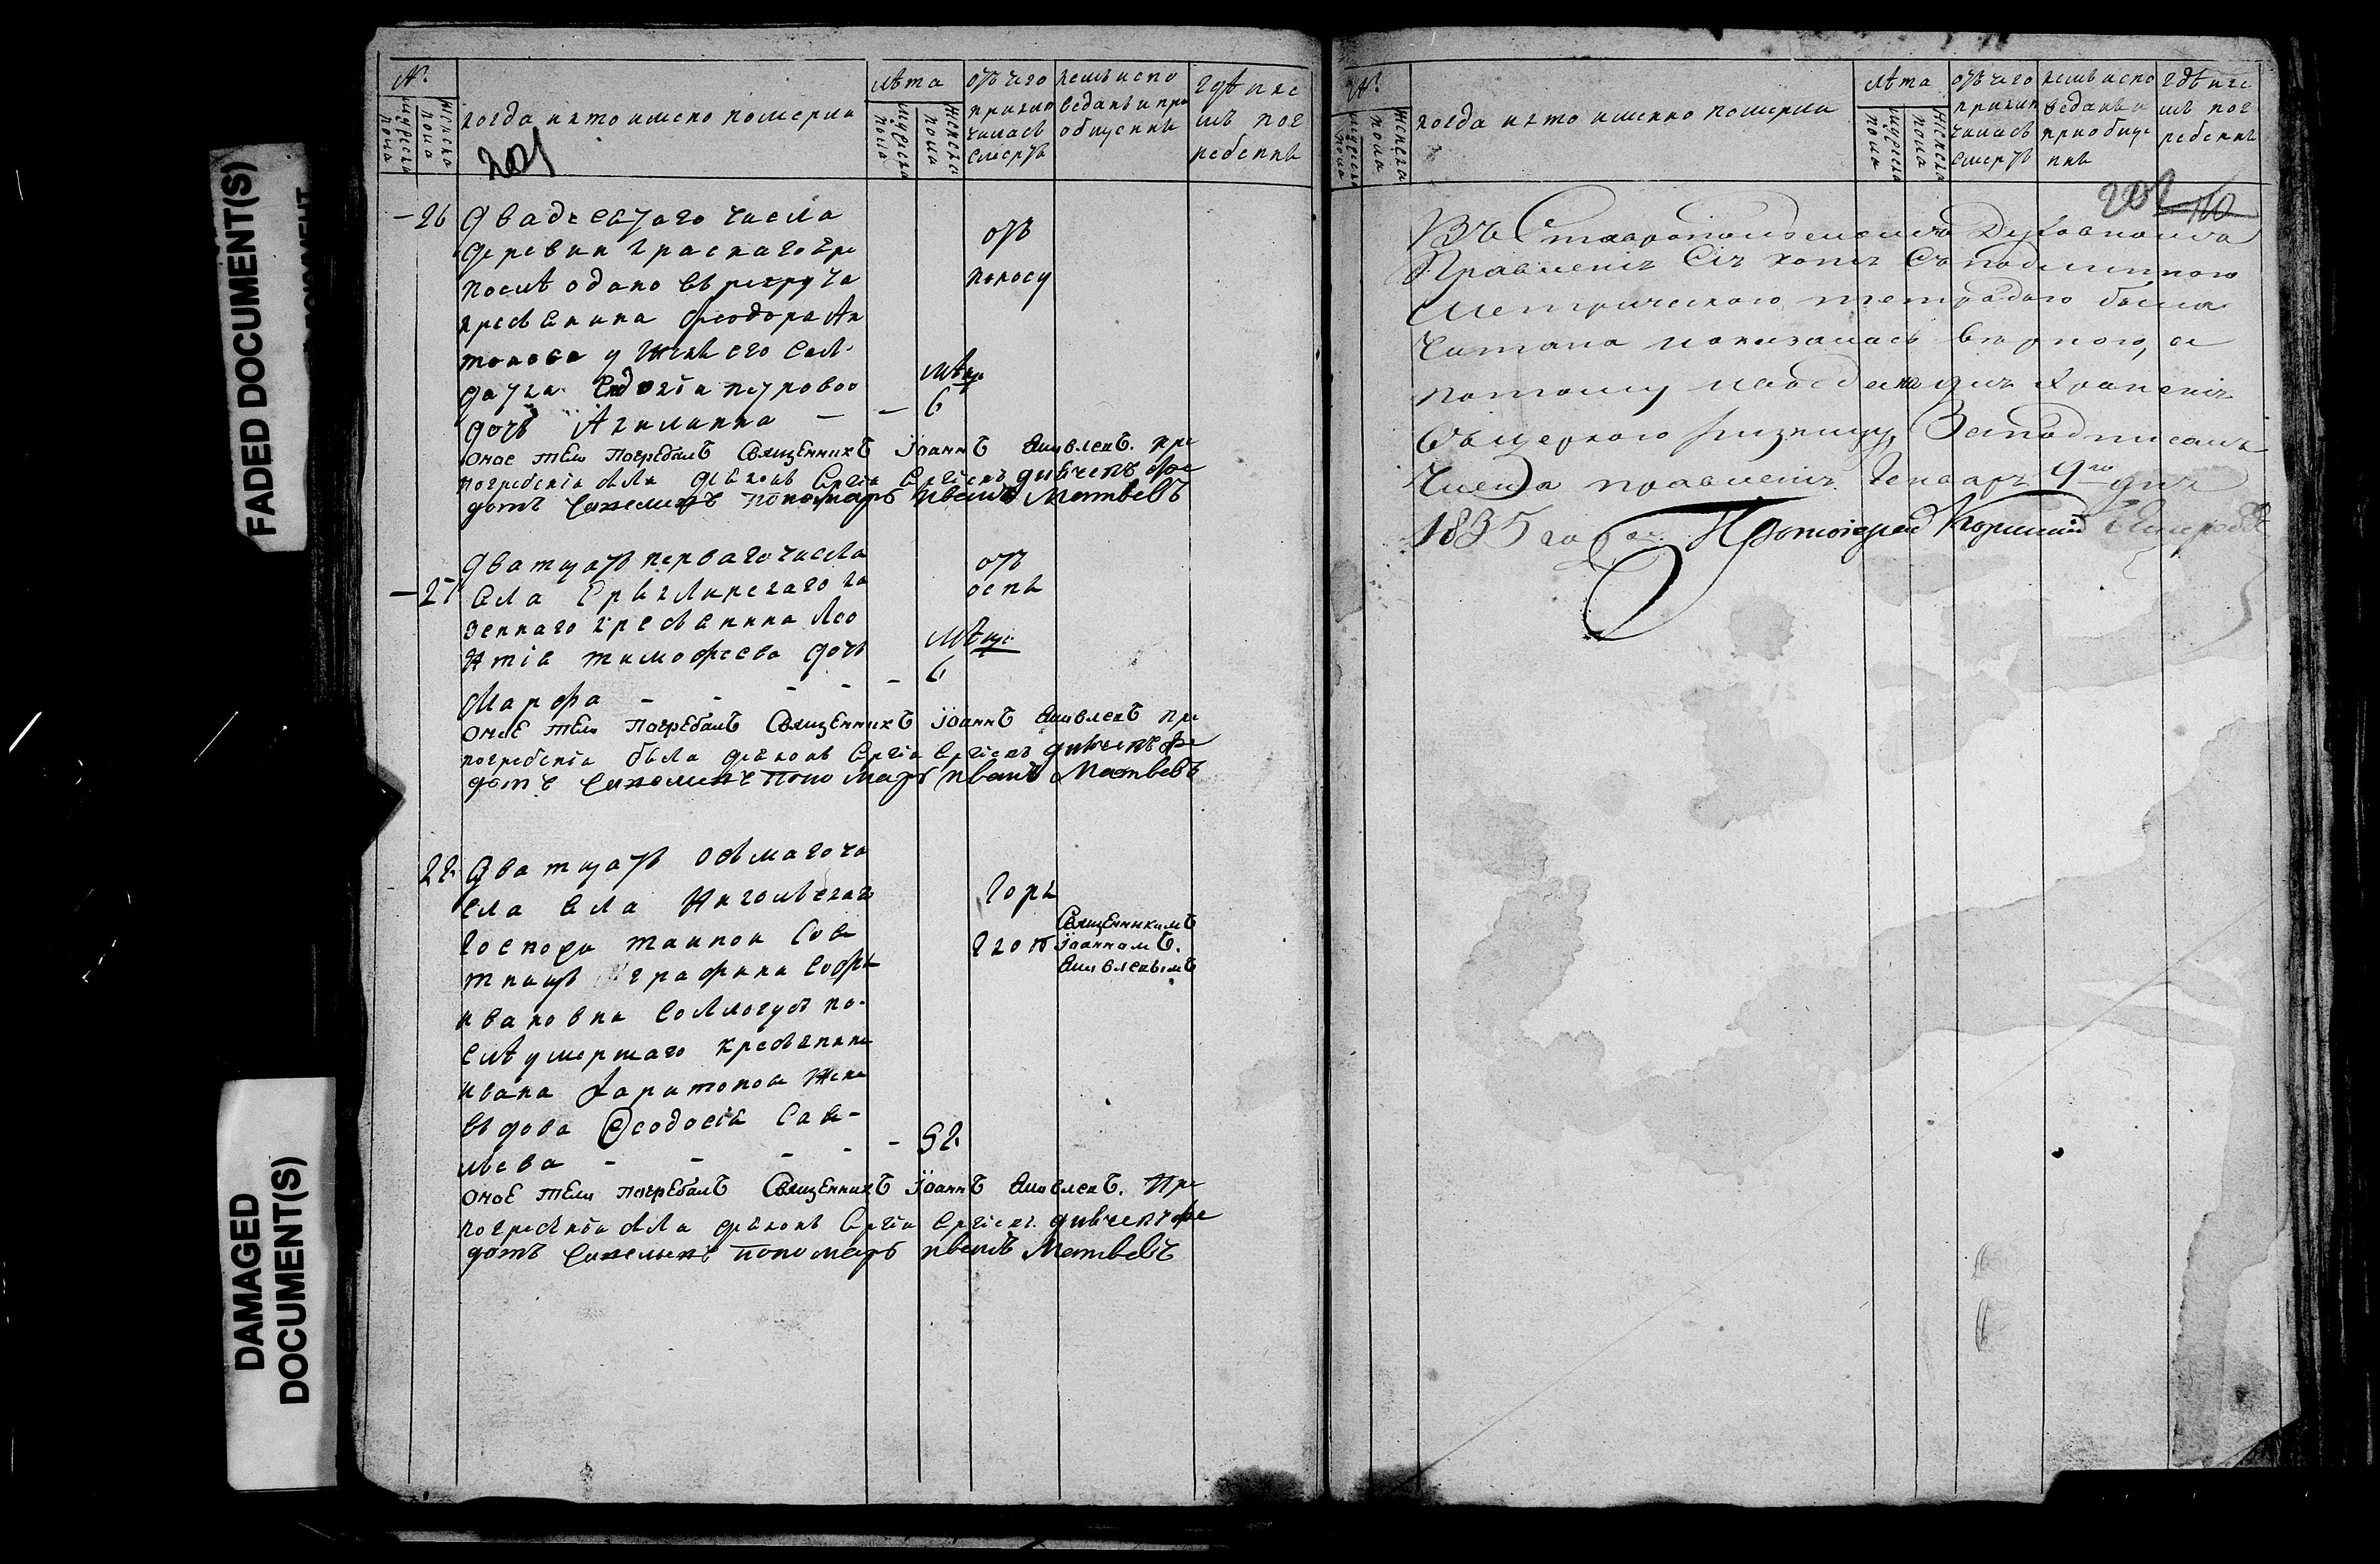 FADED DOCUMENT(S)
DAMAGED
DOCUMENT(S)
№.
мужеска пола
женска пола
когда и кто имено померли
201
лѣта
мужеска пола
женска пола
отъ чего
приклю
чилась
смерть
кемъ испо
веданы и прі
общенны
гдѣ и ке
мъ пог
ребенны
26 Двадесятаго числа
деревни
после одано въ рекрута
кресьянина феодора Ан
тонова у жены его сол
датки Евдокіи петровой
дочь Акилинна
отъ
поносу
мѣц:
6
оное тѣло погребалъ Священникъ Іоаннъ Яковлевъ. при
погребеніи были діяконъ Сергій Сергіевъ дьячекъ фе
дотъ пономарь иванъ Матвевъ
27 Дватцать перваго числа
села
зеннаго кресьянина Лео
нтія тимофеева дочь
Марфа
отъ
оспы
мѣц:
6
оное тѣло погребалъ Священникъ Іоаннъ Яковлевъ при
погребеніи были діяконъ Сергій Сергіевъ дьячекъ фе
дотъ пономарь иванъ Матвевъ
22. Дватцать осьмаго чи
сла села Никольскаго
Госпожи тайной Сове
тницы графини Софьи
ивановны Соллогубъ по
слѣ умершаго кресьянина
ивана Харитонова жена
вдова Феодосія Саве
льева
52
Горя
чкой
Священникомъ
Іоанномъ.
Яковлевымъ
оное тѣло погребалъ Священникъ Іоаннъ Яковлевъ. При
погребеніи были діяконъ Сергій Сергіевъ дьячекъ фе
дотъ пономарь иванъ Матвевъ
№.
мужеска пола
женска пола
когда и кто именно померли
лѣта
мужеска пола
женска пола
отъ чего
приклю
чилась
смерть
кемъ испо
веданы и
приобще
нны
гдѣ и ке
мъ пог
ребенны
202 160
Въ Ставропольскомъ Духовномъ
Правленіи Сія копія Съ подлинною
Метрическою тетрадью была
читана и оказалась верною, а
потому и для храненія
Членъ правленія Генваря 9го дня
1835 года. Протоіерей